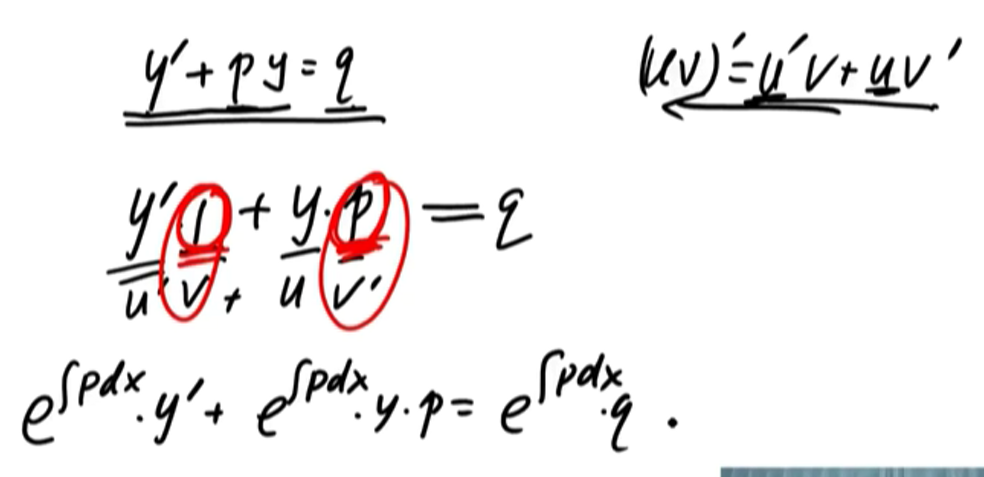 y′ + py = q
(uv)′ = u′v + uv′
y′ 1 + y · p = q
u′ v + u v′
e^∫pdx · y′ + e^∫pdx · y · p = e^∫pdx · q .